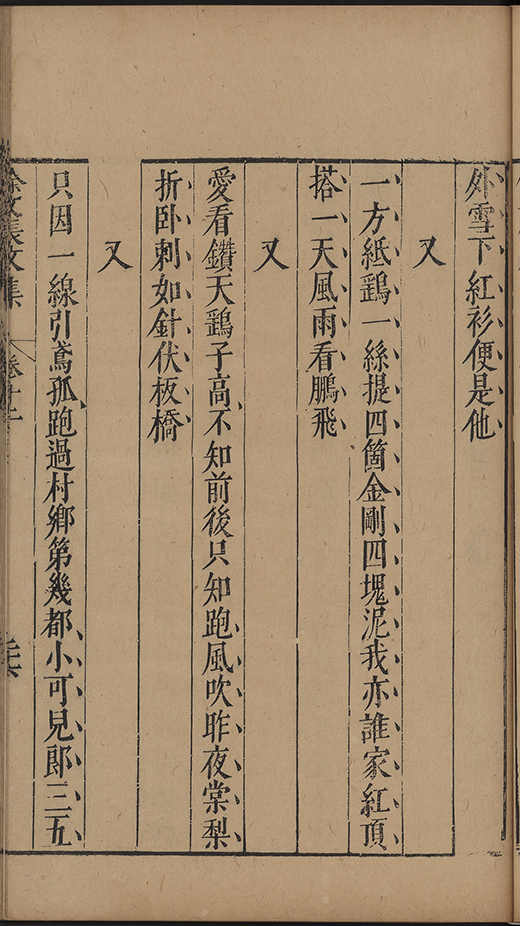 外雪下紅衫便是他
又
一方紙鷂一絲提四箇金剛四塊泥我亦誰家紅頂
搭一天風雨看鵬飛
又
愛看鑽天鷂子高不知前後只知跑風吹昨夜棠梨
折臥刺如針伏板橋
又
只因一線引鳶孤跑過村鄉第幾都小可兒郎三五
徐文長文集 卷十二